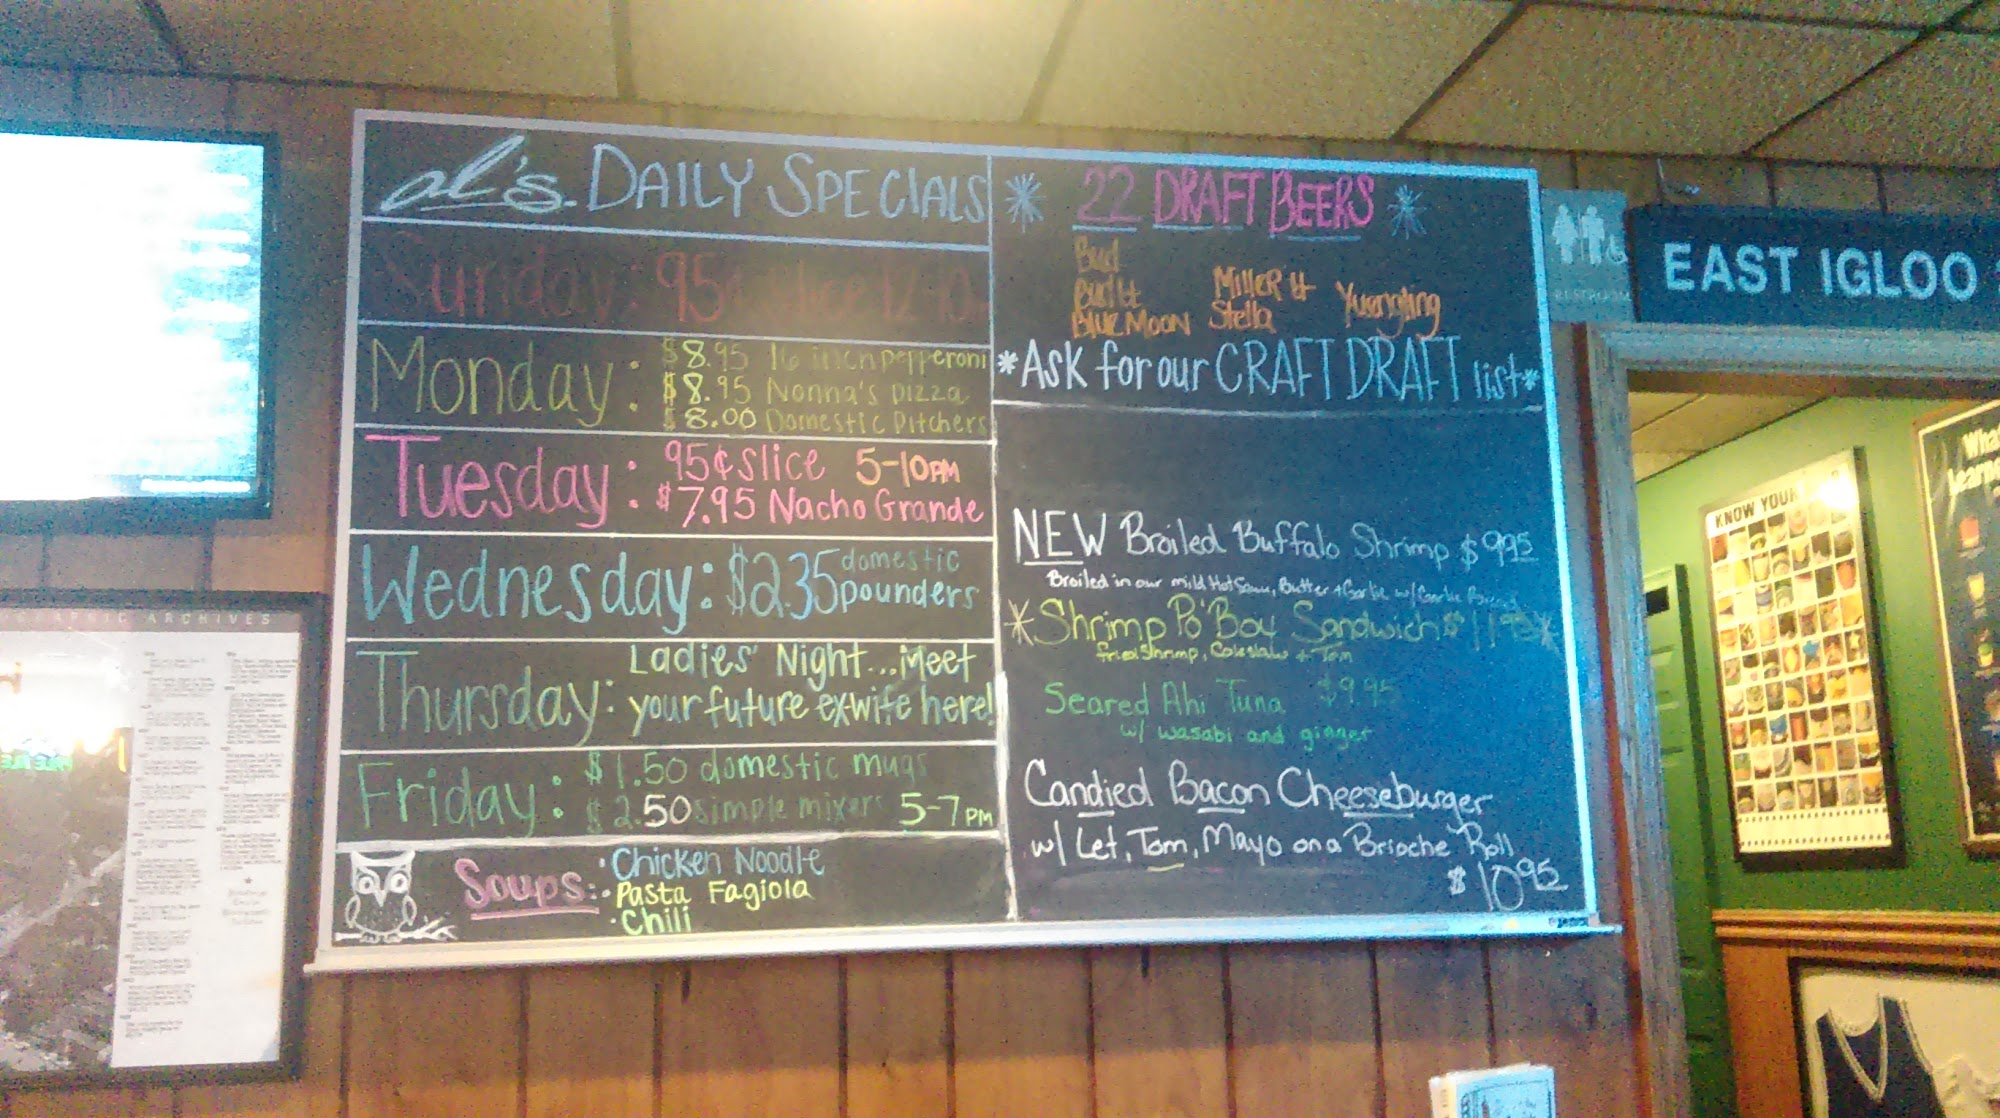 al's. DAILY SPECIALS
Sunday: 95¢ slice 12-10
Monday: $8.95 16 inch pepperoni
$8.95 Nonna's pizza
$8.00 Domestic Pitchers
Tuesday: 95¢ slice 5-10PM
$7.95 Nacho Grande
Wednesday: $2.35 domestic pounders
Thursday: Ladies' Night...Meet
your future ex-wife here!
Friday: $1.50 domestic mugs
$2.50 simple mixers 5-7PM
Soups: • Chicken Noodle
• Pasta Fagiola
• Chili
* 22 DRAFT BEERS *
Bud
Bud Lt Miller Lt Yuengling
Blue Moon Stella
*Ask for our CRAFT DRAFT list*
NEW Broiled Buffalo Shrimp $9.95
Broiled in our mild Hot Sauce, Butter + Garlic w/ Garlic Bread
*Shrimp Po'Boy Sandwich $11.95*
fried shrimp, Coleslaw + Tom
Seared Ahi Tuna $9.95
w/ wasabi and ginger
Candied Bacon Cheeseburger
w/ Let, Tom, Mayo on a Brioche Roll
$10.95
RESTROOM
EAST IGLOO
KNOW YOUR
What
Learned
ARCHIVES